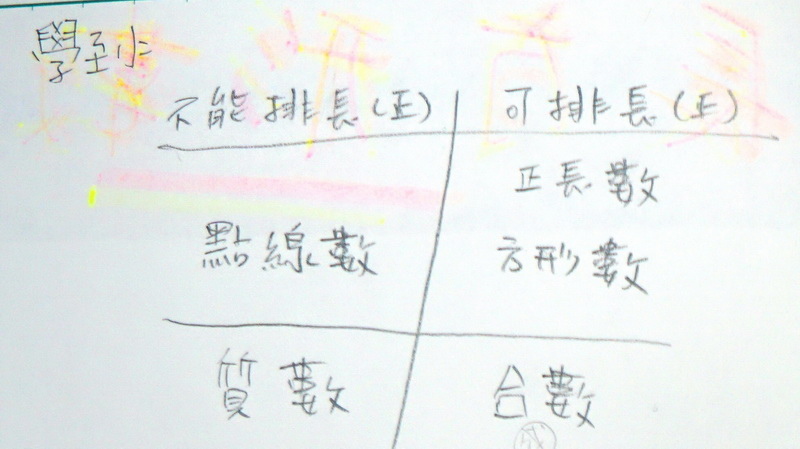 學到
不能排長(正) 可排長(正)
正長數
點線數 方形數
質數 合數